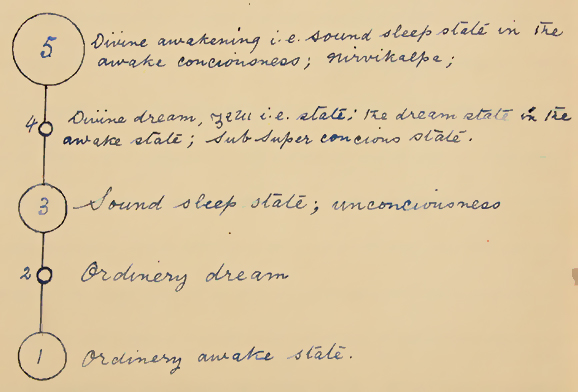 5 Divine awakening i.e. sound sleep state in the
awake conciousness; nirvikalpa;
4 Divine dream, i.e. state; the dream state in the
awake state; sub super concious state.
3 Sound sleep state; unconciousness
2 Ordinery dream
1 Ordinery awake state.